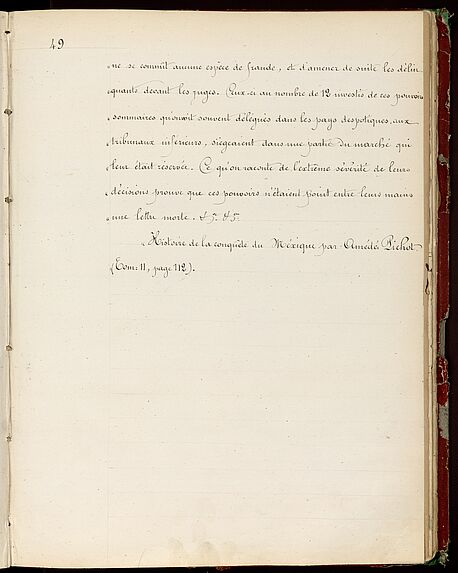 49
„ ne se commît aucune espèce de fraude, et d'amener de suite les délin
„ quants devant les juges. Ceux-ci au nombre de 12 investis de ces pouvoirs
„ sommaires qu'on voit souvent délégués dans les pays despotiques, aux
„ tribunaux inférieurs, siégeaient dans une partie du marché qui
„ leur était réservée. Ce qu'on raconte de l'extrême sévérité de leurs
„ décisions prouve que ces pouvoirs n'étaient point entre leurs mains
„ une lettre morte. &
„ Histoire de la conquête du Méxique par Amédée Pichot
(Tom: 11, page 112).